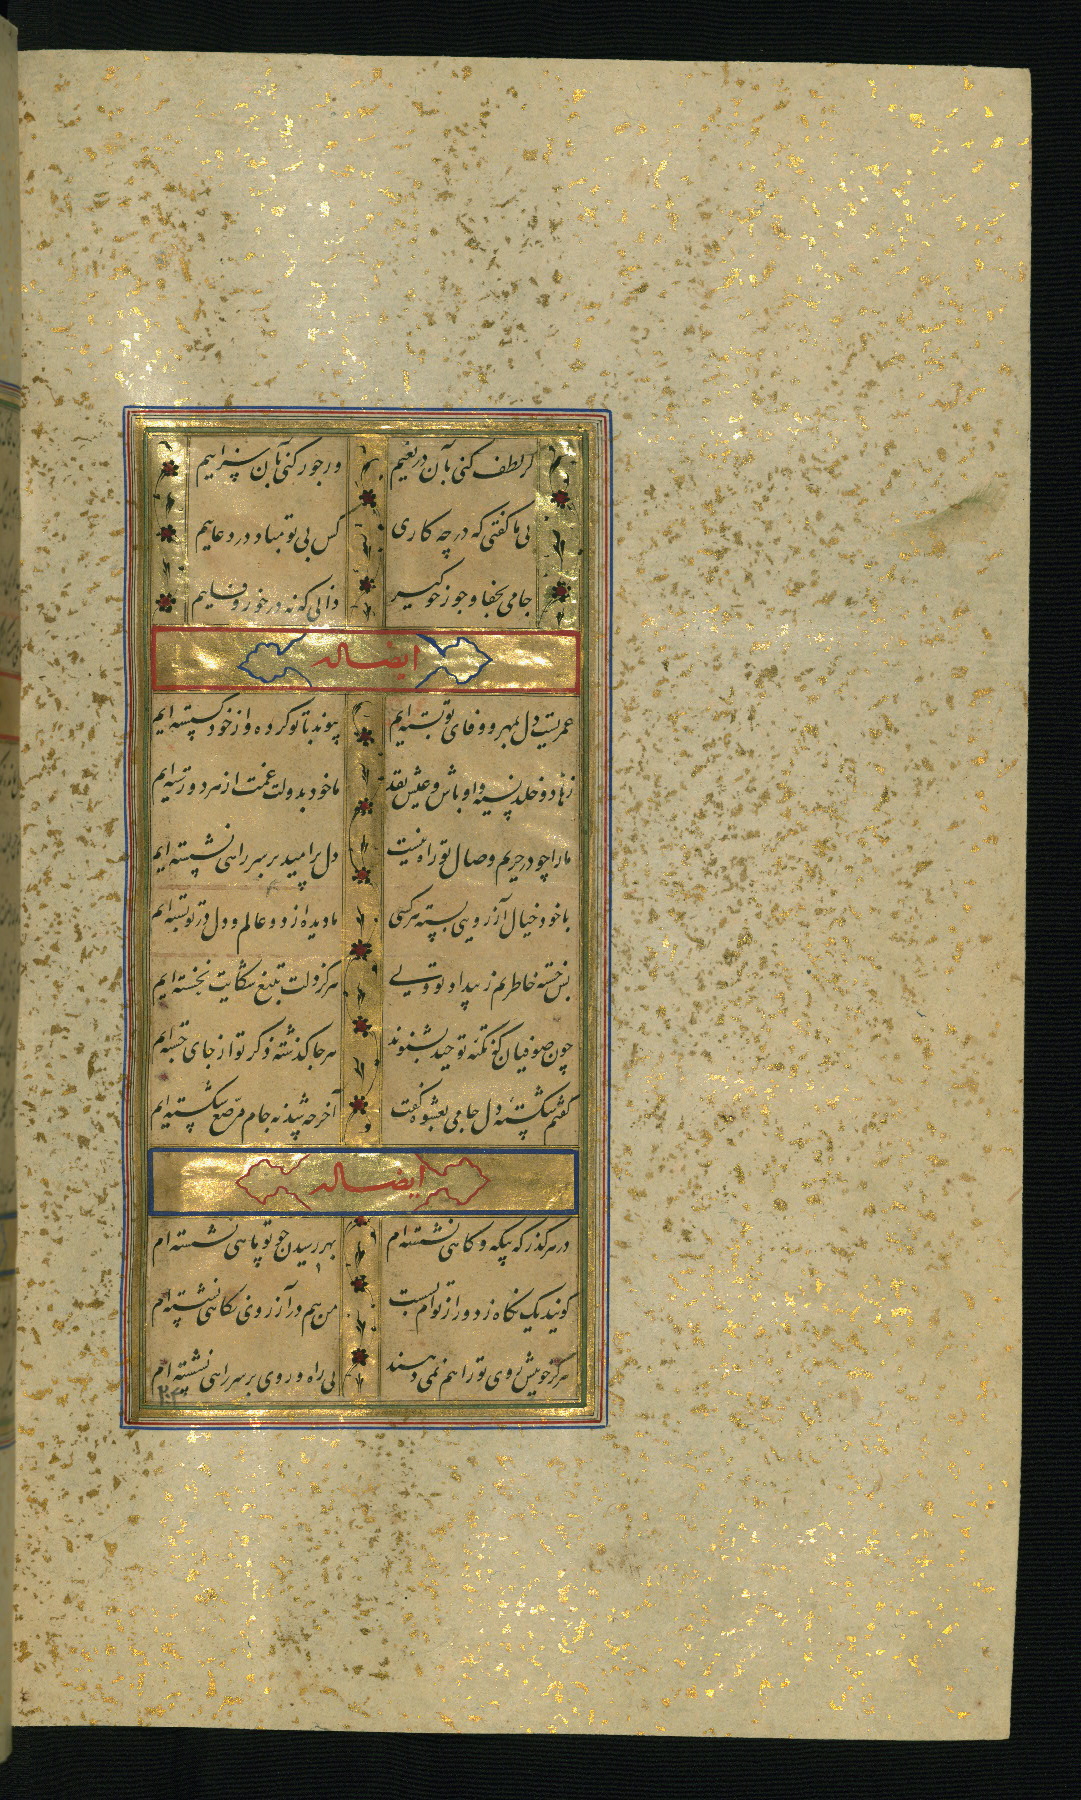 گر لطف کنی بآن دریغیم ور جور کنی بآن سزاییم
بی ما گفتی که در چه کاری کس بی تو مباد در دعاییم
جامی بجفا و جور خو گیر دانی که نه در خور وفاییم
ایضا له
عمریست دل بمهر و وفای تو بسته ایم پیوند با تو کرده و از خود گسسته ایم
زهاد و خلد نسیه و اوباش و عیش نقد ما خود بدولت غمت از هر دو رسته ایم
ما را چو در حریم وصال تو راه نیست دل پر امید بر سر راهی نشسته ایم
با خود خیال آرزویی بسته هر کسی ما دیده از دو عالم و دل در تو بسته ایم
بس خسته خاطریم ز بیداد تو ولی هرگز دلت بتیغ شکایت نخسته ایم
چون صوفیان که نکته توحید بشنوند هر جا گذشته ذکر تو از جای جسته ایم
گفتم شکسته دل جامی بعشوه گفت آخر چه شد نه جام مرصع شکسته ایم
ایضا له
در هر گذر که بیگه و گاهی نشسته ام بهر رسیدن چو تو ماهی نشسته ام
گویند یک نگاه ز دور از توام بست من هم در آرزوی نگاهی نشسته ام
هرگز خویش روی تو را هم نمی دهند بی راه و روی بر سر راهی نشسته ام